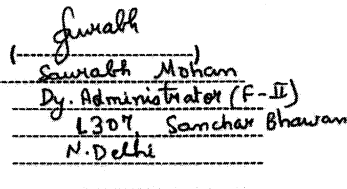 Saurabh
(--------------------)
Saurabh Mohan
Dy. Administrator (F-II)
1307, Sanchar Bhawan
N. Delhi